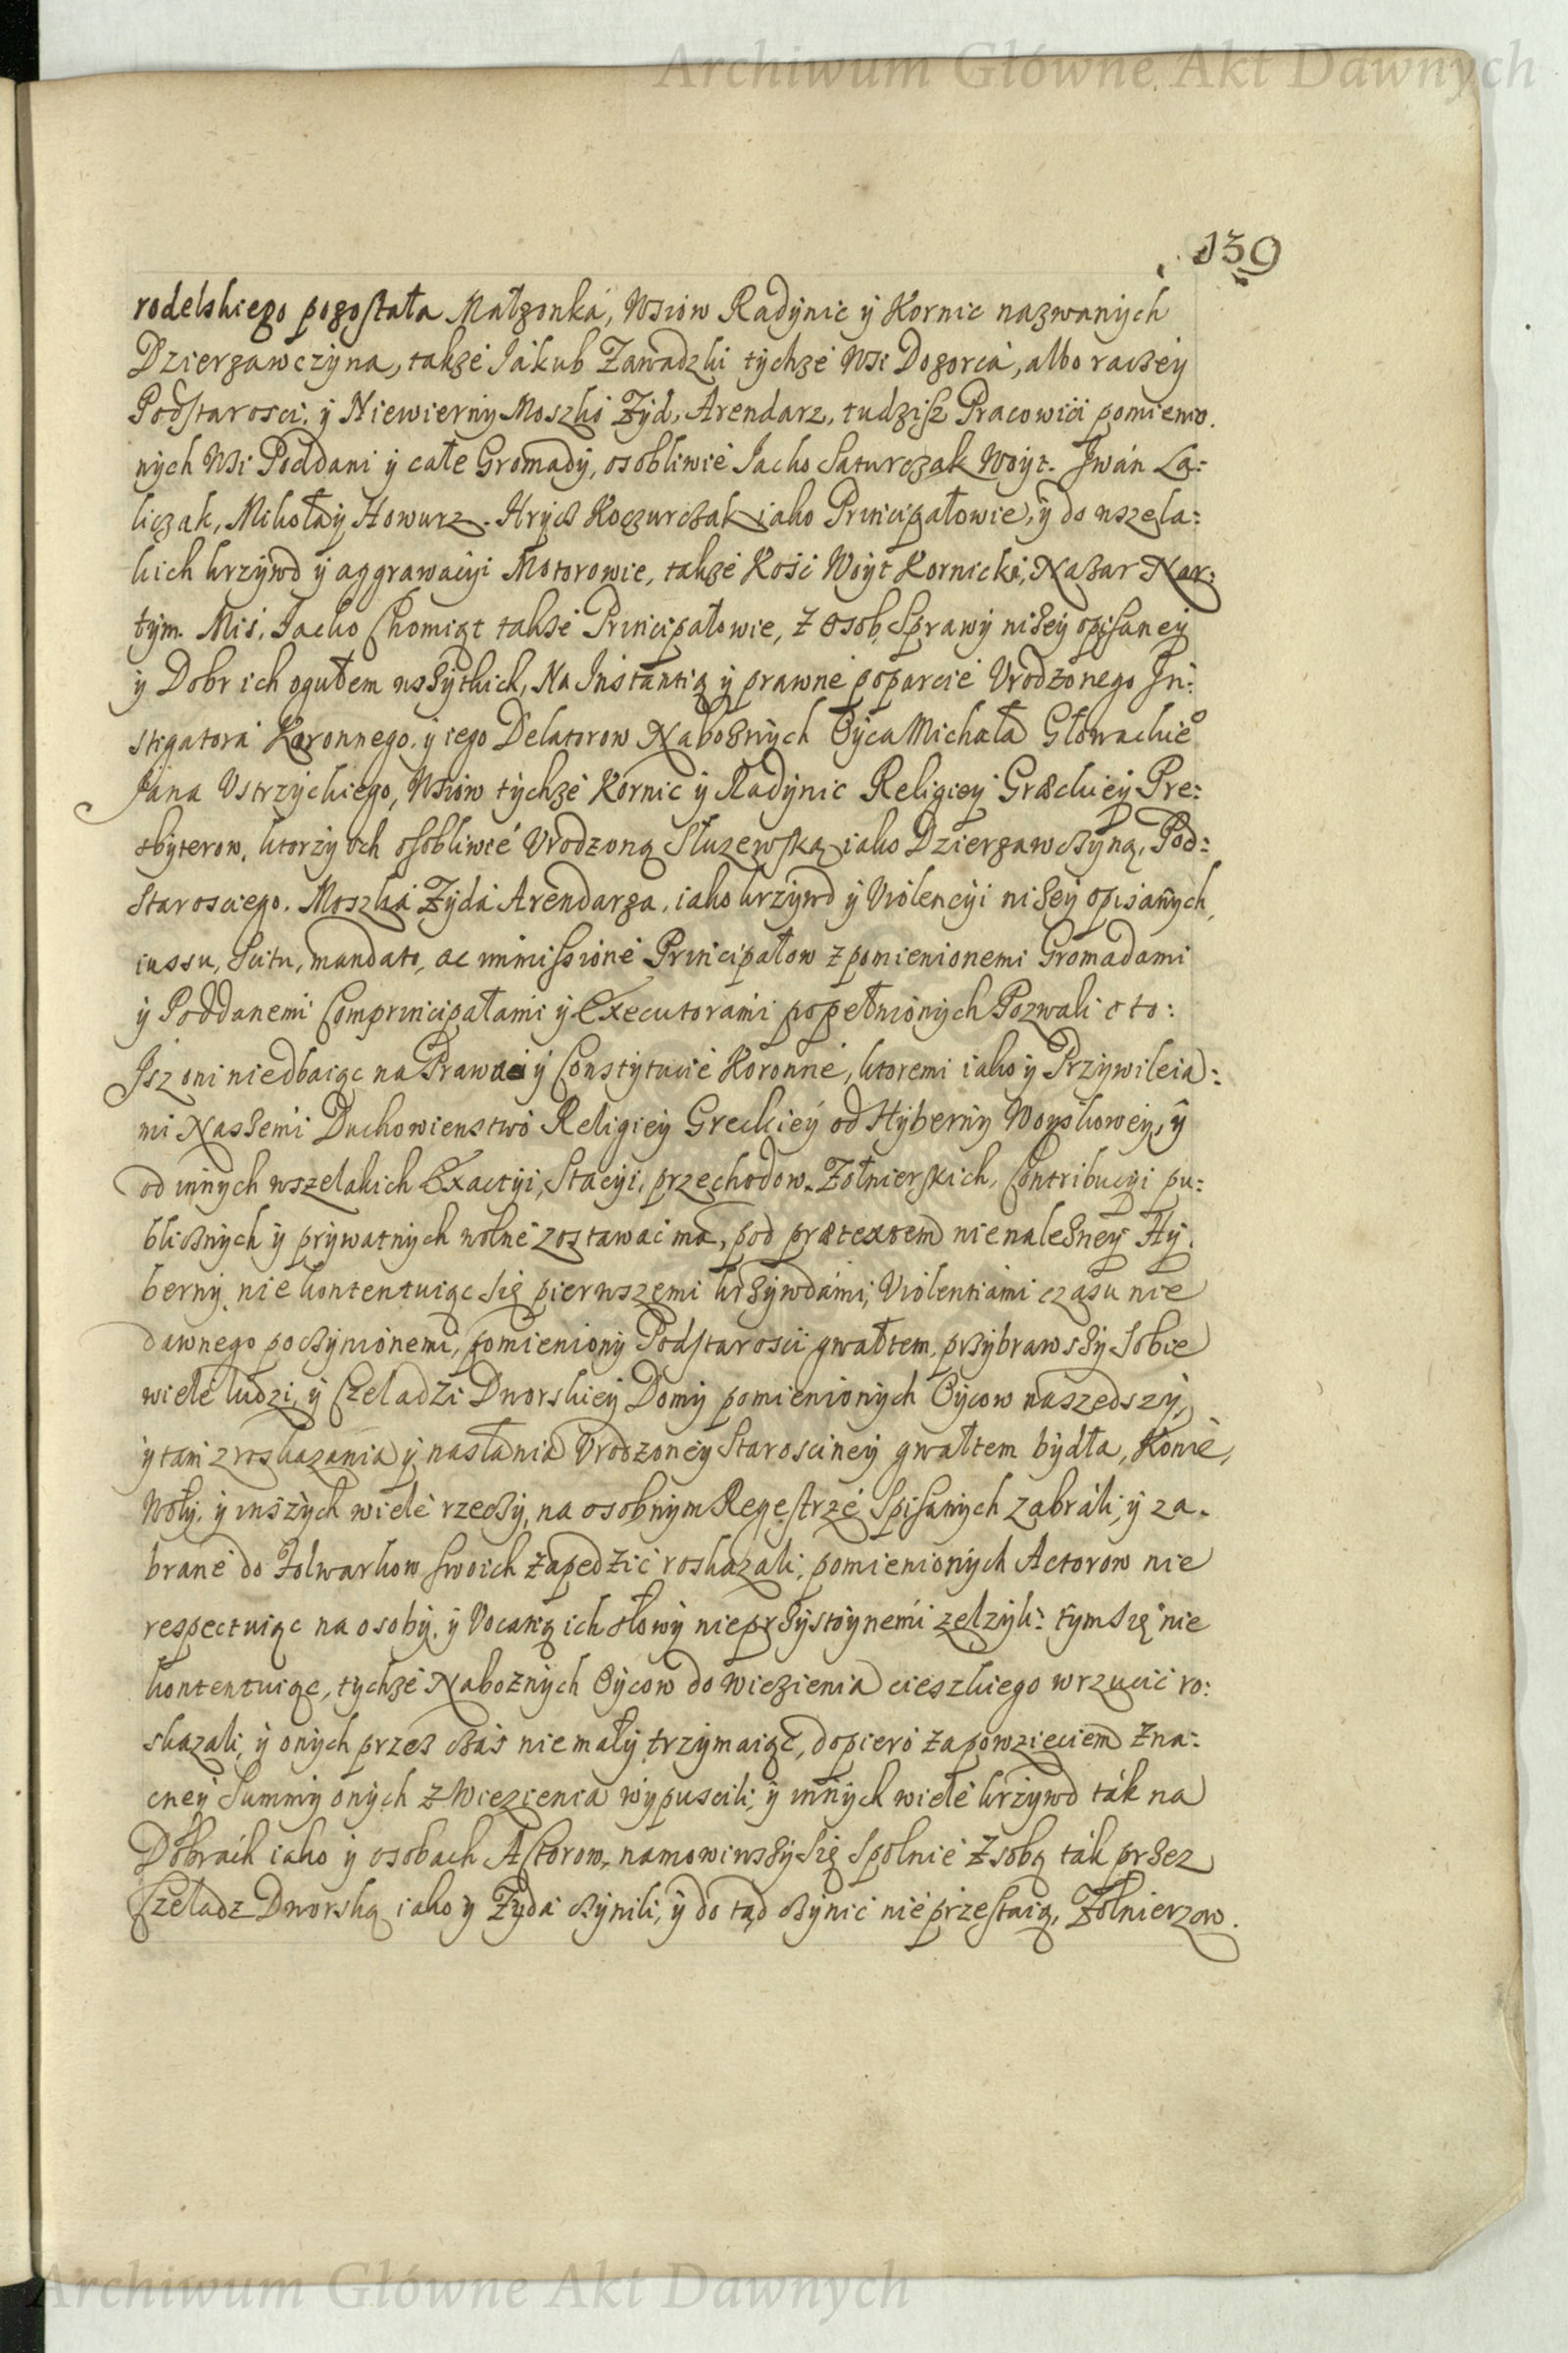 Archiwum Główne Akt Dawnych
139
rodelskiego pozostała Małżonka, Wsiow Radynic y Kornic nazwanych
Dzierżawczyna, także Jakub Zawadzki tychże Wsi Dozorca, albo raczey
Podstarosci, y Niewierny Moszko Żyd, Arendarz, tudzisz Pracowici pomienio.
nych Wsi Poddani y całe Gromady, osobliwie Jacko Saturczak Woyt. Jwan La:
liczak, Mikołay Howurz. Hrycz Koczurczak iako Principałowie, y do wszela:
kich krzywd y aggrawacyi Motorowie, także Kość Woyt Kornicki, Nazar Nar:
tym. Miś, Jacko Chomiąt także Principałowie, z osob, Sprawy niżey opisaney
y Dobr ich ogułem wszytkich, Na Instantią y prawne poparcie Vrodzonego Jn:
stigatora Koronnego, y iego Delatorow Nabożnych Oyca Michała Głowackie°
Jana Vstrzyckiego, Wsiow tychże Kornic y Radynic Religiey Græckiey Pre:
sbyterow, ktorzy ich osobliwie Vrodzoną Służewską iako Dzierzawczyną, Pod:
starosciego. Moszka Żyda Arendarza, iako krzywd y Violencyi niżey opisanych,
iussu, scitu, mandato, ac immissione Principałow z pomienionemi Gromadami
y Poddanemi Comprincipałami y Executorami popełnionych Pozwali o to:
Jsz oni niedbaiąc na Prawa y Constytucie Koronne, ktoremi iako y Przywileia:
mi Naszemi Duchowienstwo Religiey Greckiey od Hyberny Woyskowey, y
od innych wszelakich Exactyi, Stacyi, przechodow Żołnierskich, Contribucyi pu:
blicznych y prywatnych wolne zostawać ma, pod prætextem nienależney Hy.
berny, nie kontentuiąc się pierwszemi krzywdami, Violentiami czasu nie
dawnego poczynionemi, pomieniony Podstarosci gwałtem, przybrawszy sobie
wiele ludzi, y Czeladzi Dworskiey Domy pomienionych Oycow naszedszy,
y tam z roskazania y nasłania Vrodzoney Starosciney gwałtem bydła, Konie,
Woły, y inszych wiele rzeczy, na osobnym Regestrze spisanych zabrali, y za.
brane do Folwarkow swoich zapędzić roskazali, pomienionych Actorow nie
respectuiąc na osoby, y Vocatią ich słowy nieprzystoynemi zelżyli: tym się nie
kontentuiąc, tychże Nabożnych Oycow do Wiezienia cieszkiego wrzucić ro:
skazali, y onych przez czas niemały trzymaiąc, dopiero za powzieciem zna:
cney Summy onych z Wiezienia wypuscili, y innych wiele krzywd tak na
Dobrach iako y osobach Actorow, namowiwszy się spolnie z sobą tak przez
Czeladz Dworską iako y Żyda czynili, y do tąd czynic nie przestaią, Żołnierzow.
Archiwum Główne Akt Dawnych